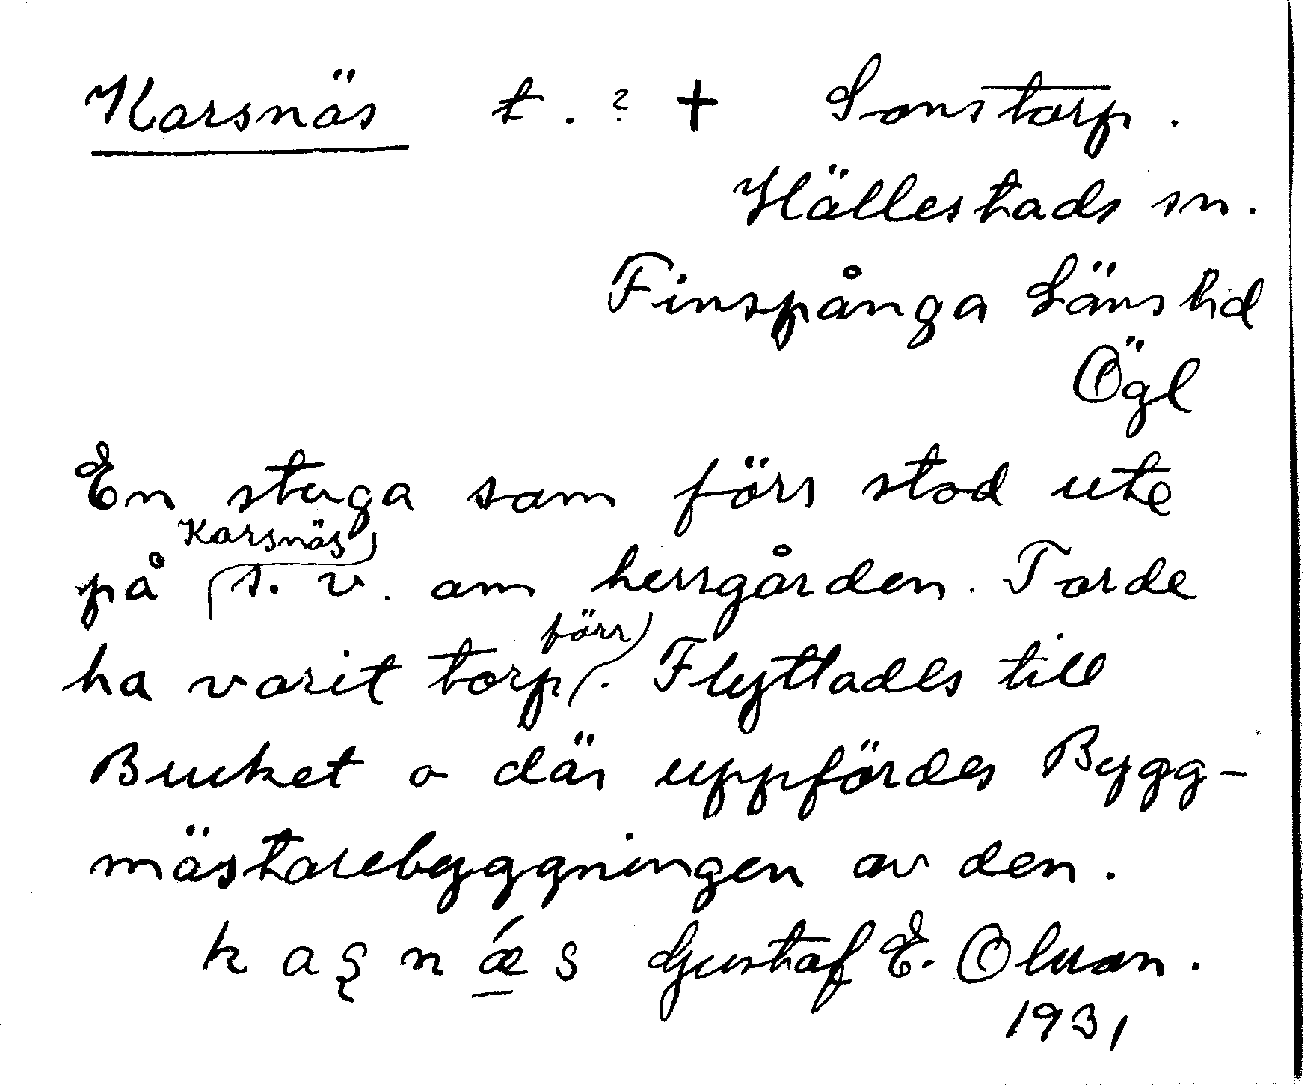 Karsnäs t. ? † Sonstorp.
Hällestads sn.
Finspånga Läns hd
Ögl
En stuga som förr stod ute
på Karsnäs s. v. om herrgården. Torde
ha varit torp förr. Flyttades till
Bucket o där uppfördes Bygg-
mästarebyggningen av den.
kaʂnǽs Gustaf E. Olsson.
1931